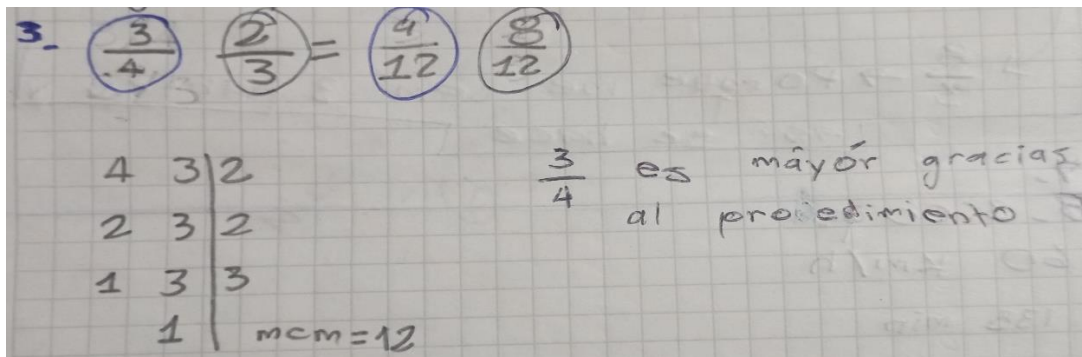 3. 3/4 2/3 = 9/12 8/12
4 3 | 2
2 3 | 2
1 3 | 3
1 | mcm = 12
3/4 es máyór gracias
al procedimiento